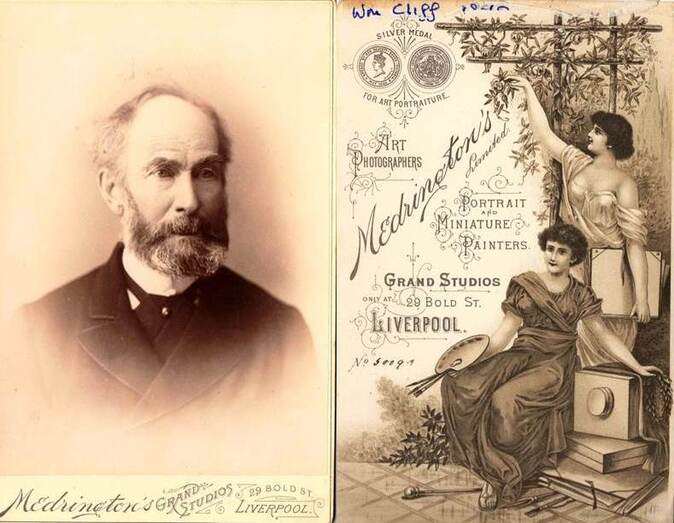 Medrington's GRAND STUDIOS 29 BOLD ST. LIVERPOOL.
Wm Cliff
SILVER MEDAL
FOR ART PORTRAITURE.
ART
PHOTOGRAPHERS
Medrington's
Limited.
PORTRAIT
AND
MINIATURE
PAINTERS.
GRAND STUDIOS
ONLY AT 29 BOLD ST.
LIVERPOOL.
No 50091